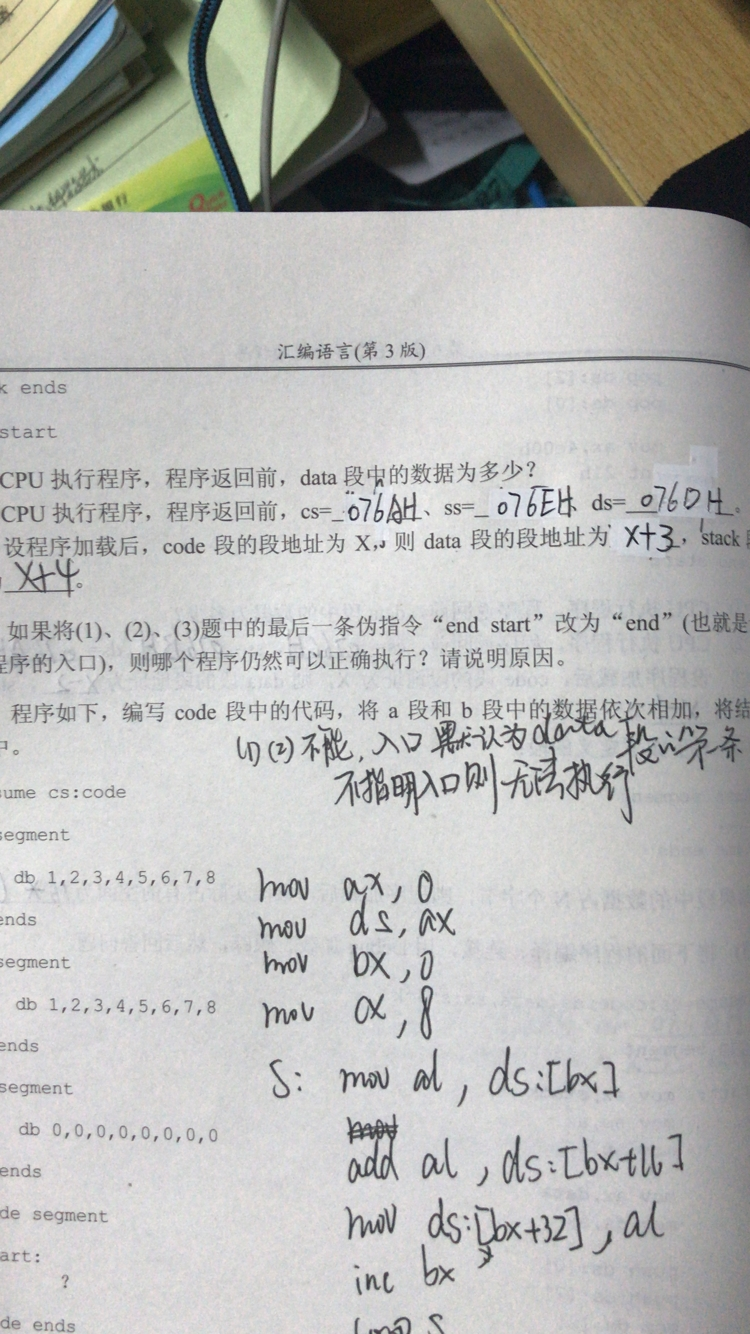 汇编语言(第 3 版)
k ends
start
CPU 执行程序，程序返回前，data 段中的数据为多少？
CPU 执行程序，程序返回前，cs=_076AH、ss=_076EH ds=_076DH_。
设程序加载后，code 段的段地址为 X，则 data 段的段地址为 X+3，stack
X+4。
如果将(1)、(2)、(3)题中的最后一条伪指令“end start”改为“end”(也就是
程序的入口)，则哪个程序仍然可以正确执行？请说明原因。
程序如下，编写 code 段中的代码，将 a 段和 b 段中的数据依次相加，将结
中。
(1)(2)不能，入口默认为data段的第一条
不指明入口则无法执行
ume cs:code
segment
db 1,2,3,4,5,6,7,8
mov ax,0
ends
mov ds,ax
segment
mov bx,0
db 1,2,3,4,5,6,7,8
mov cx,8
ends
S: mov al, ds:[bx]
segment
db 0,0,0,0,0,0,0,0
mov
add al, ds:[bx+16]
ends
de segment
mov ds:[bx+32], al
art:
?
inc bx
de ends
loop S